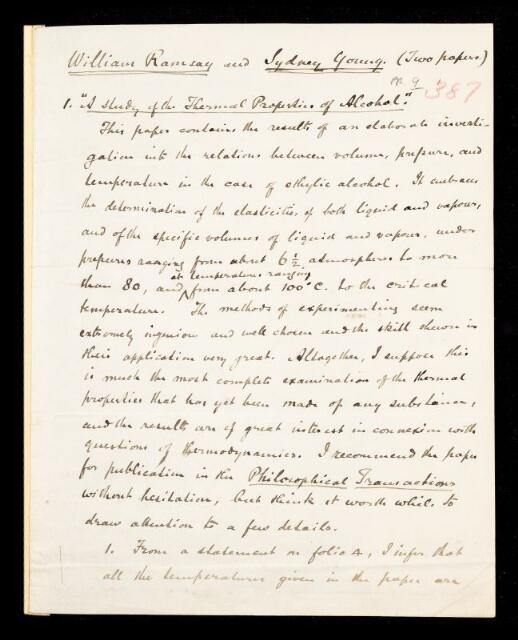 William Ramsay and Sydney Young. (Two papers)
RR 9
387
1. "A study of the Thermal Properties of Alcohol".
This paper contains the results of an elaborate investi-
gation into the relations between volume, pressure, and
temperature in the case of ethylic alcohol. It embraces
the determination of the elasticities, of both liquid and vapour,
and of the specific volumes of liquid and vapour, under
pressures ranging from about 6 1/2 atmospheres to more
at temperatures ranging
than 80, and from about 100° C. to the critical
temperature. The methods of experimenting seem
extremely ingenious and well chosen and the skill shewn in
their application very great. Altogether, I suppose this
is much the most complete examination of the thermal
properties that has yet been made of any substance,
and the results are of great interest in connexion with
questions of thermodynamics. I recommend the paper
for publication in the Philosophical Transactions
without hesitation, but think it worth while to
draw attention to a few details.
1. From a statement on folio 4, I infer that
all the temperatures given in the paper are